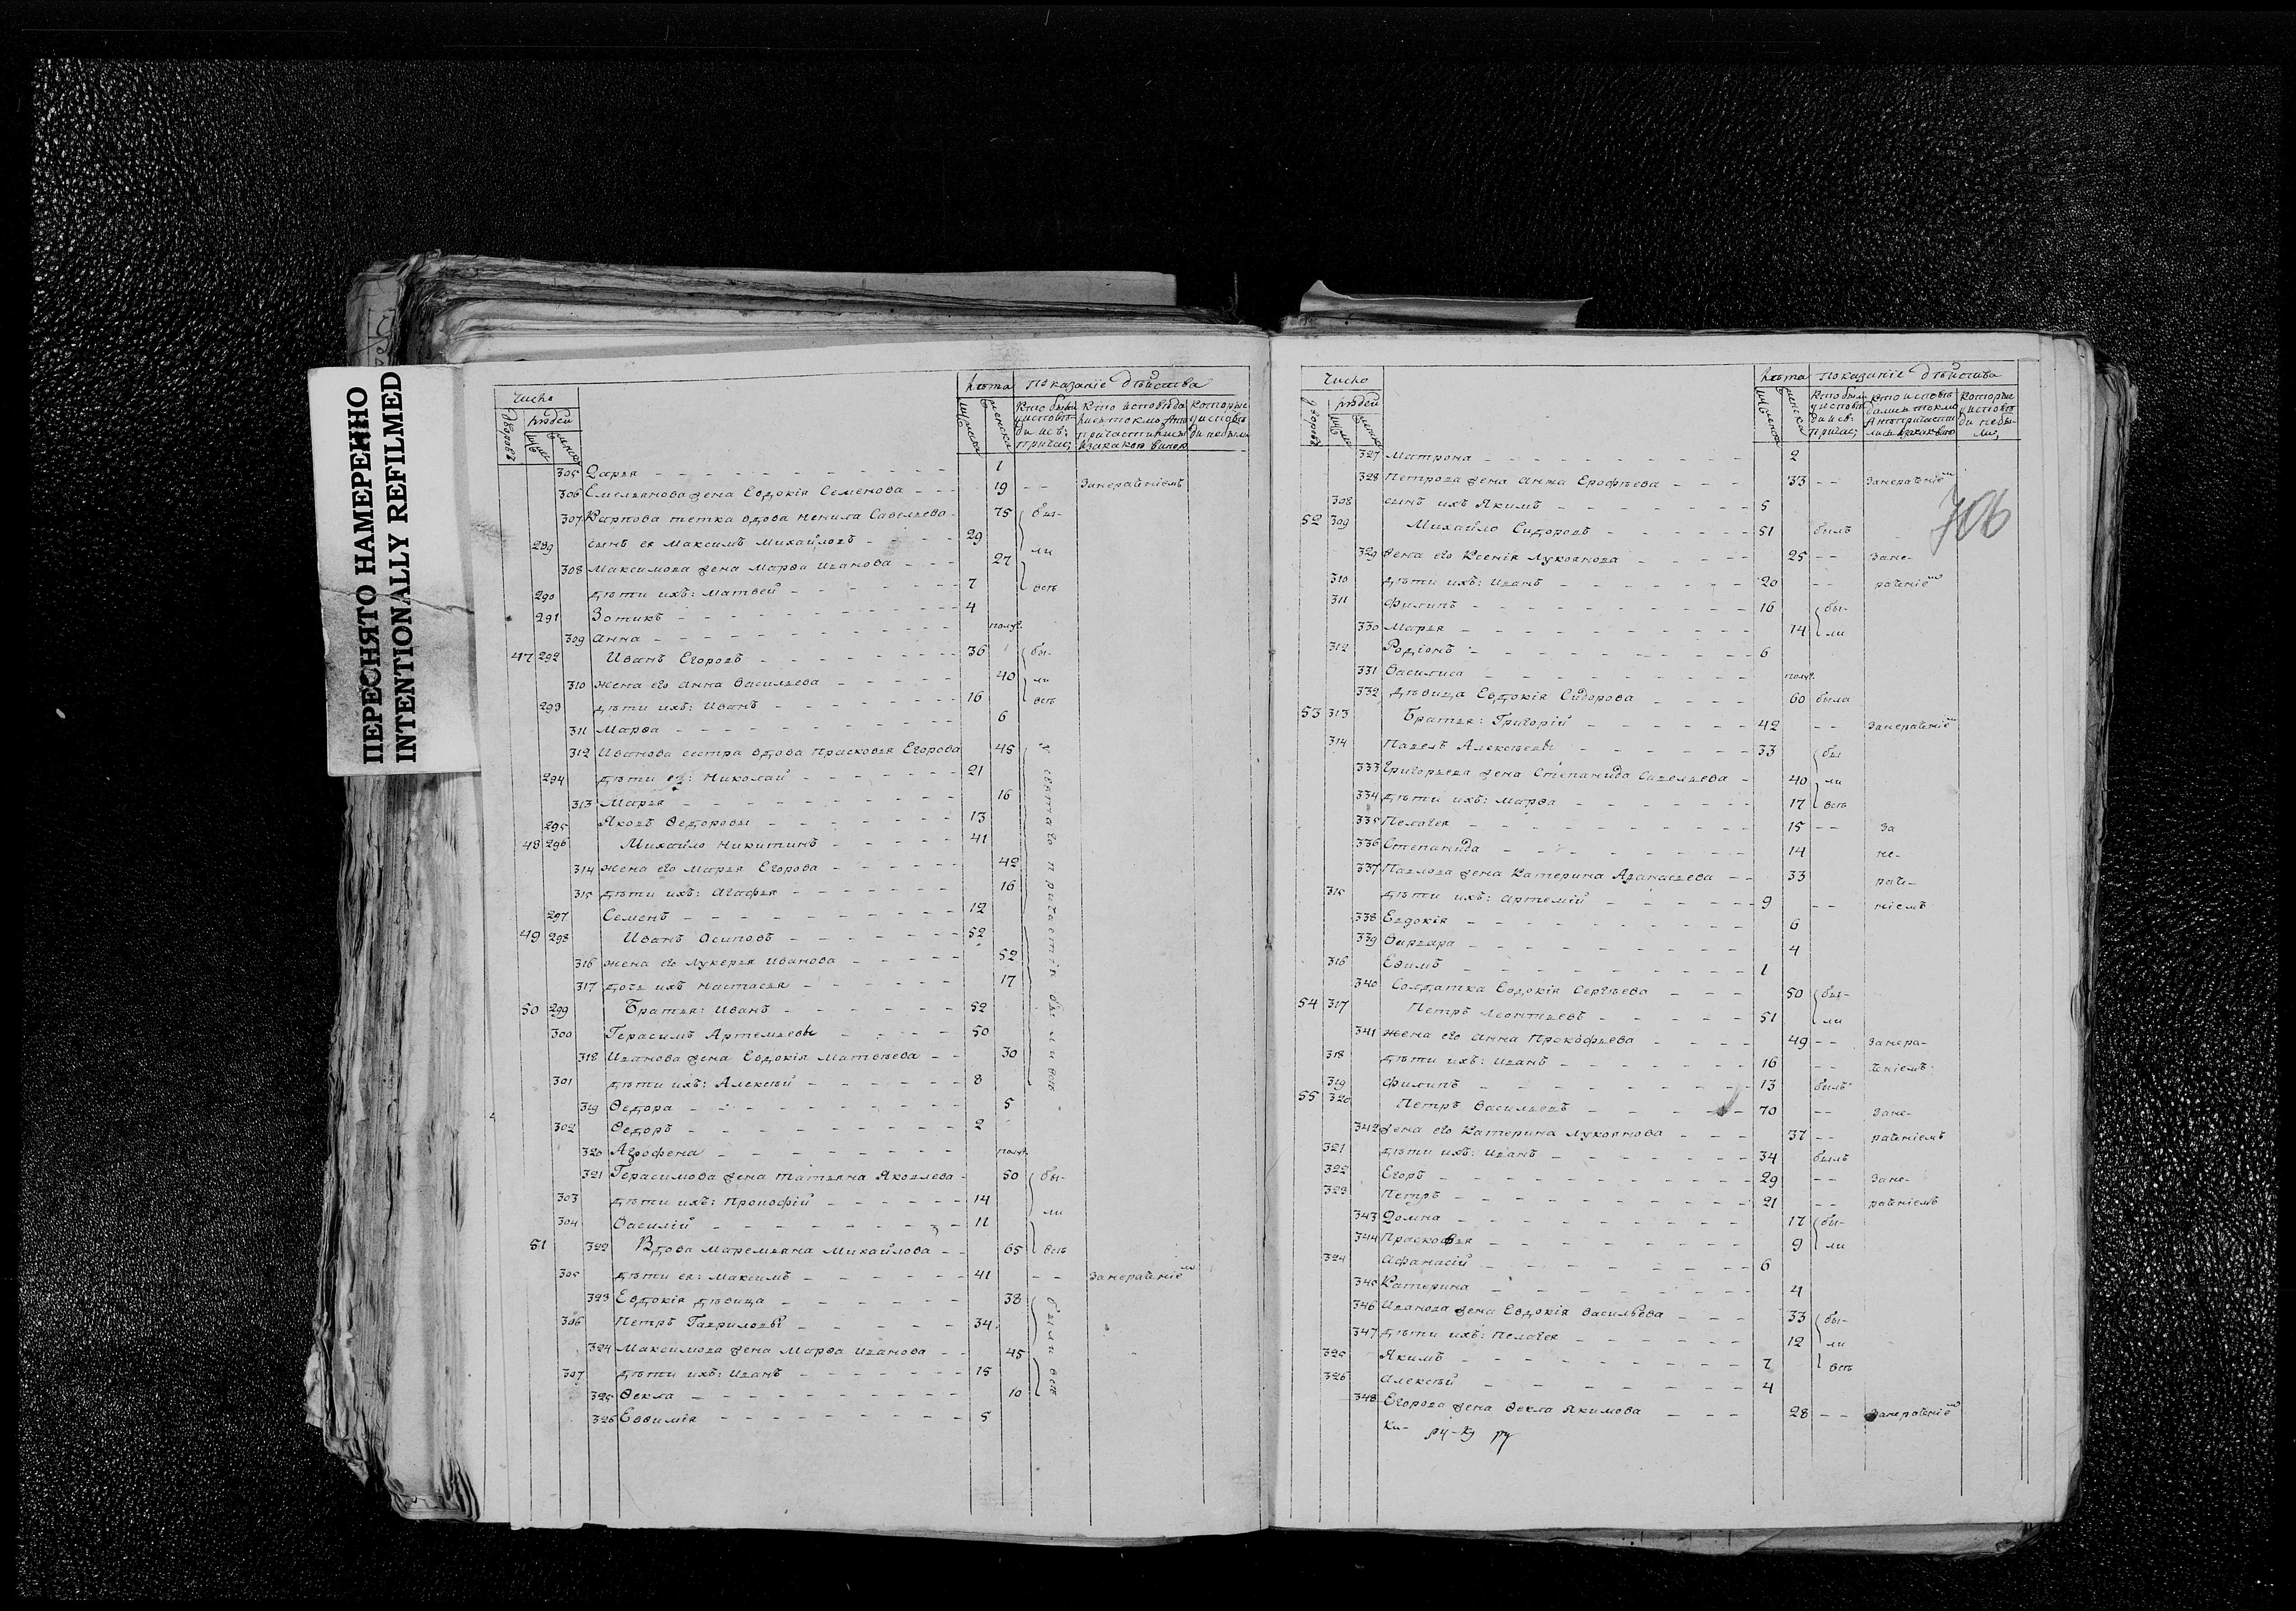 ПЕРЕСНЯТО НАМЕРЕННО
INTENTIONALLY REFILMED
Число лѣта показаніе дѣйства
дворовъ людей
305 Дарья 1
306 Емельянова жена Евдокія Семенова 19 Занерачѣніемъ
307 Карпова тетка вдова Ненила Савельева 75 бы-
289 сынъ ея Максимъ Михайловъ 29
308 Максимова жена Марѳа Иванова 27 ли
290 дѣти ихъ: Матвей 7 всѣ
291 Зотикъ 4
309 Анна полуг.
47 292 Иванъ Егоровъ 36 бы-
310 жена его Анна Васильева 40 ли
293 дѣти ихъ: Иванъ 16 всѣ
311 Марѳа 6
312 Иванова сестра вдова Прасковья Егорова 45 у святаго причастія были всѣ
294 дѣти ея: Николай 21
313 Марья 16
295 Яковъ Ѳедоровы 13
48 296 Михайло Никитинъ 41
314 жена его Марья Егорова 42
315 дѣти ихъ: Агафья 16
297 Семенъ 12
49 298 Иванъ Осиповъ 52
316 жена его Лукерья Иванова 52
317 дочь ихъ Настасья 17
50 299 Братья: Иванъ 52
300 Герасимъ Артемьевы 50
318 Иванова жена Евдокія Матвѣева 30
301 дѣти ихъ: Алексѣй 8
319 Ѳедора 5
302 Ѳедоръ 2
320 Агрофена полуг.
321 Герасимова жена Татьяна Яковлева 50 бы-
303 дѣти ихъ: Прокофій 14
304 Василій 11 ли
51 322 Вдова Маремьяна Михайлова 65 всѣ
305 дѣти ея: Максимъ 41 Занерачѣніемъ
323 Евдокія дѣвица 38 были всѣ
306 Петръ Гавриловы 34
324 Максимова жена Марѳа Иванова 45
307 дѣти ихъ: Иванъ 15
325 Ѳекла 10
326 Евѳимія 5
706
Число лѣта показаніе дѣйства
дворовъ людей
327 Матрона 2
328 Петрова жена Анна Ерофѣева 33 Занерачѣніемъ
308 сынъ ихъ Якимъ 5
52 309 Михайло Сидоровъ 51 былъ
329 жена его Ксенія Лукоянова 25 Зане-
310 дѣти ихъ: Иванъ 20 рачѣніемъ
311 Филипъ 16 бы-
330 Марья 14 ли
312 Родіонъ 6
331 Василиса полуг.
332 Дѣвица Евдокія Сидорова 60 была
53 313 Братья: Григорій 42 Занерачѣніемъ
314 Павелъ Алексѣевы 33 бы
333 Григорьева жена Степанида Савельева 40 ли
334 дѣти ихъ: Марѳа 17 всѣ
335 Пелагея 15 за
336 Степанида 14 не-
337 Павлова жена Катерина Аѳанасьева 33 рачѣ-
315 дѣти ихъ: Артемій 9 ніемъ
338 Евдокія 6
339 Варвара 4
316 Ефимъ 1
340 Солдатка Евдокія Сергѣева 50 бы-
54 317 Петръ Леонтьевъ 51 ли
341 жена его Анна Прокофьева 49 Занера-
318 дѣти ихъ: Иванъ 16 чѣніемъ
319 Филипъ 13 былъ
55 320 Петръ Васильевъ 70 Зане-
342 жена его Катерина Лукоянова 37 рачѣніемъ
321 дѣти ихъ: Иванъ 34 былъ
322 Егоръ 29 Зане-
323 Петръ 21 рачѣніемъ
343 Домна 17 бы-
344 Прасковья 9 ли
324 Афанасій 6
345 Катерина 4
346 Иванова жена Евдокія Васильева 33 бы-
347 дѣти ихъ: Пелагея 12 ли
325 Якимъ 7 всѣ
326 Алексѣй 4
348 Егорова жена Ѳекла Якимова 28 Занерачѣніемъ